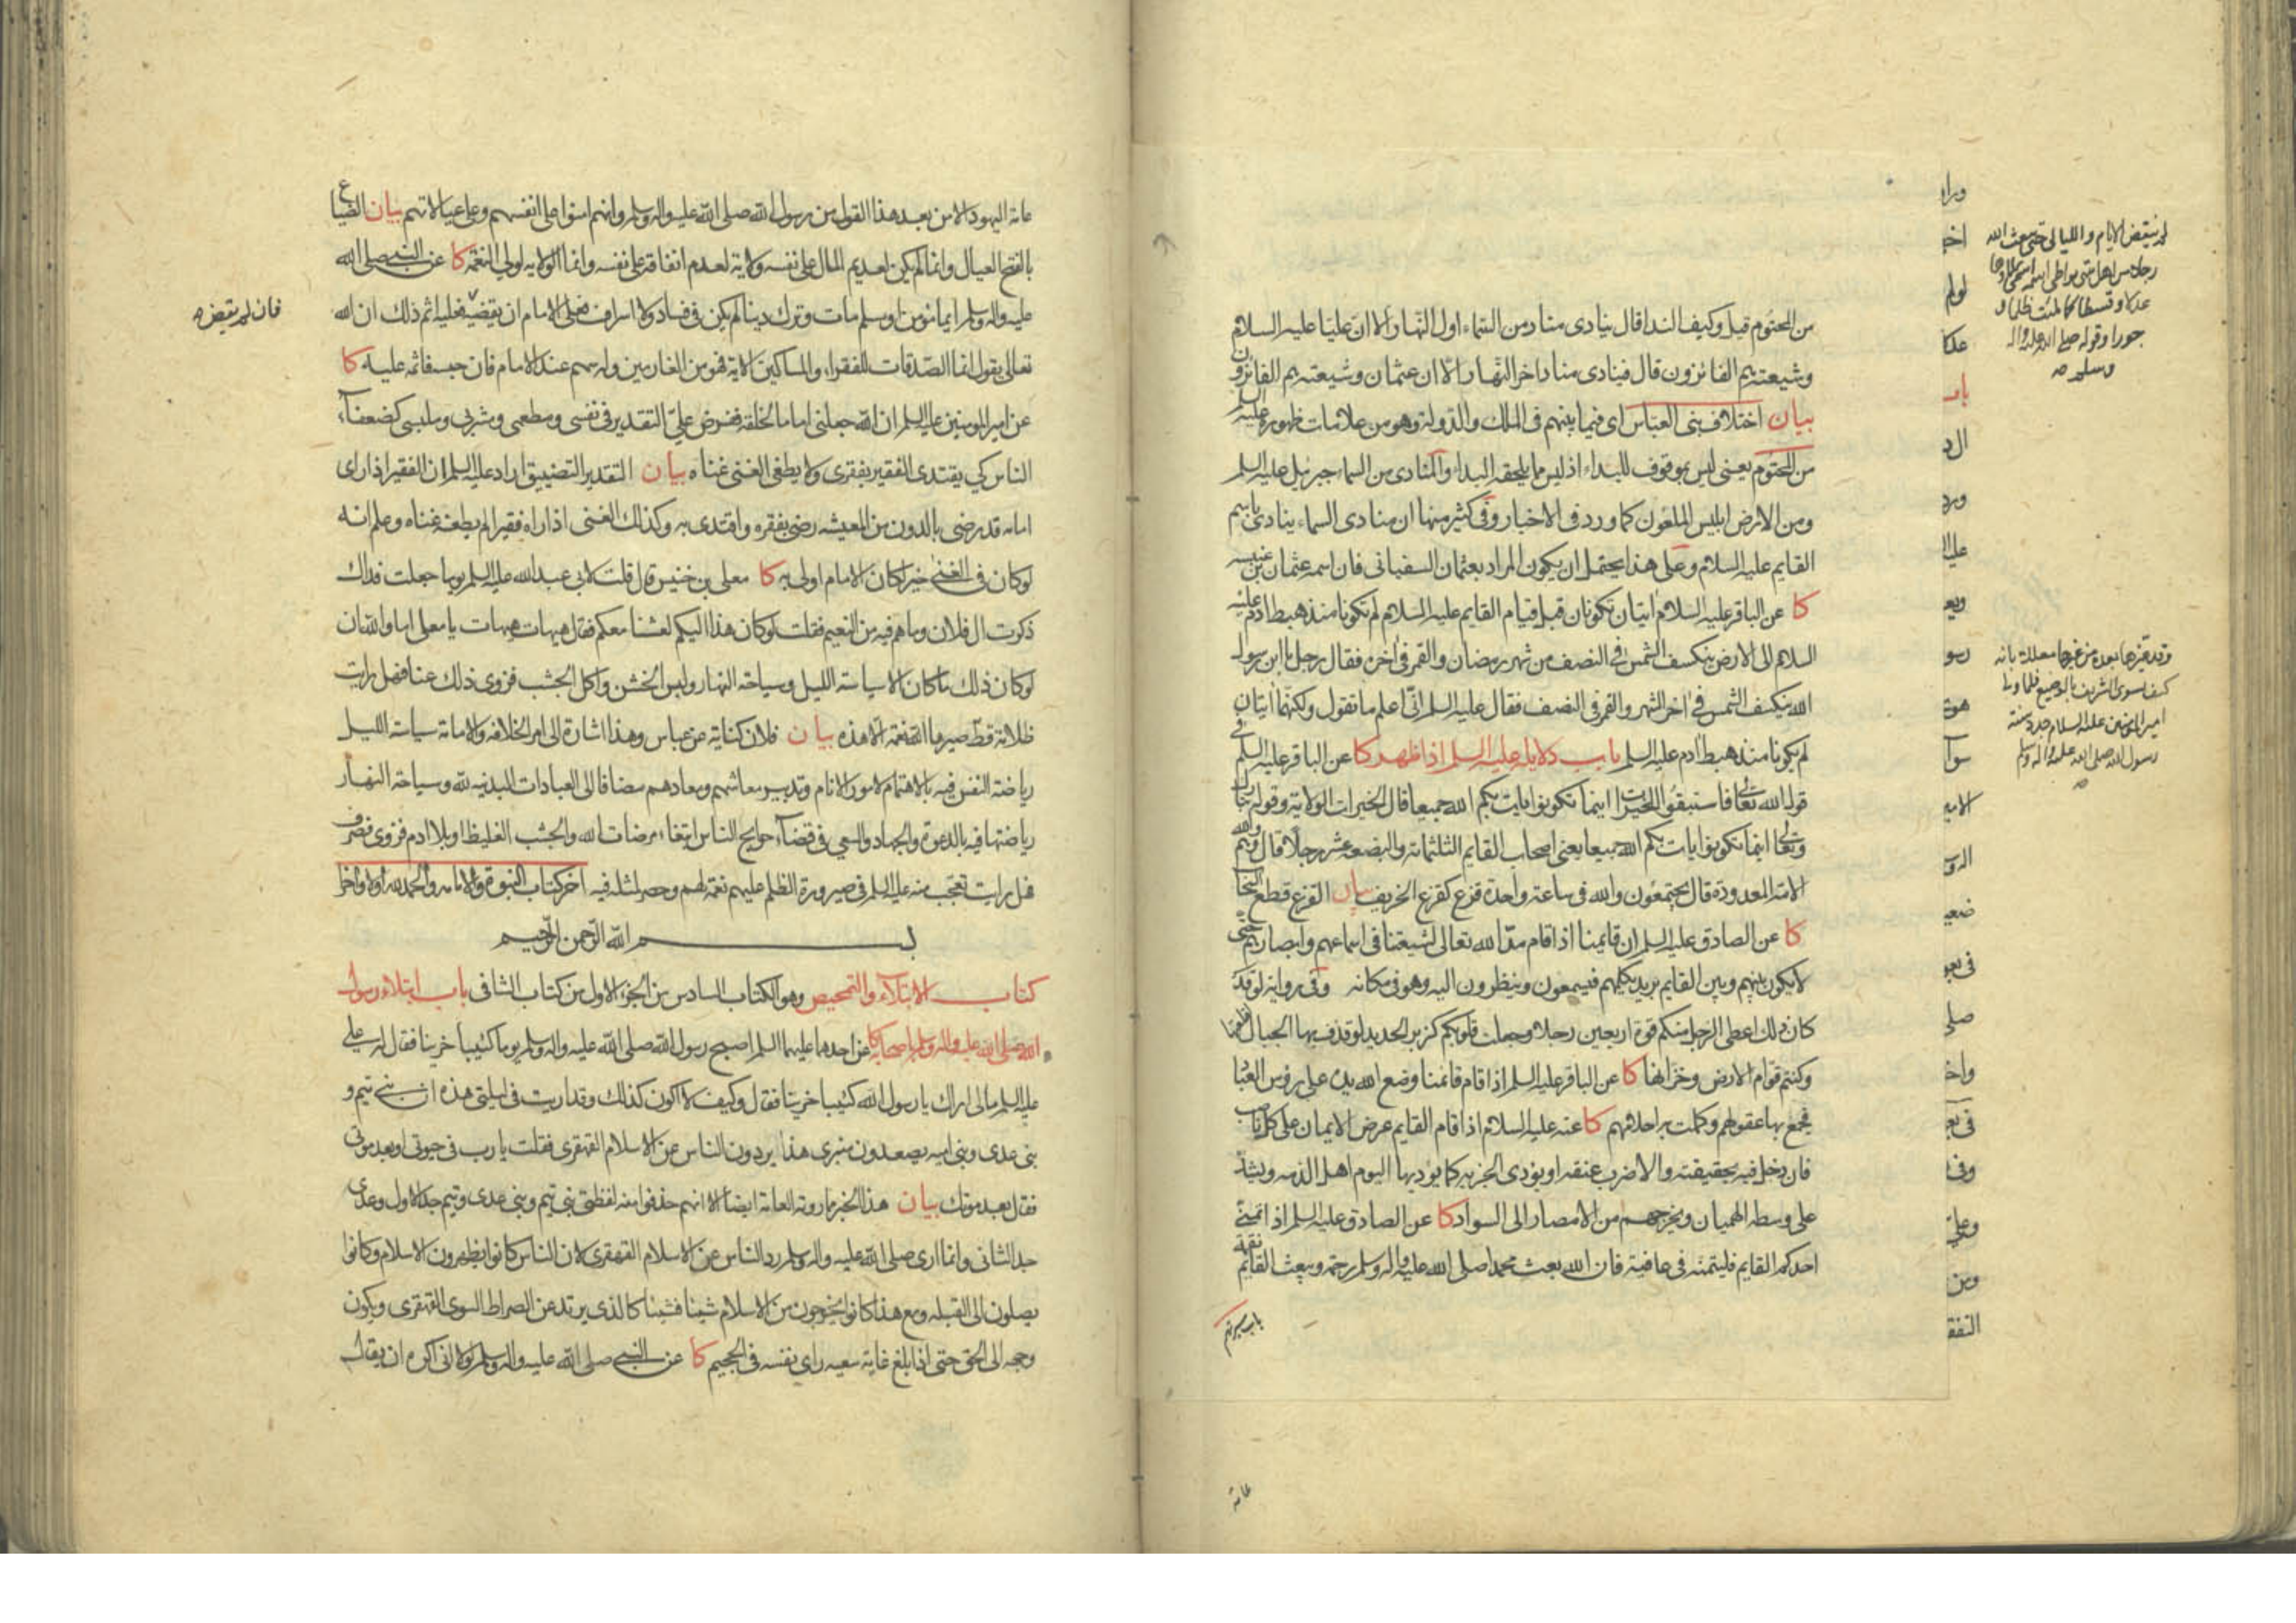 من المحتوم قيل وكيف الندا قال ينادى مناد من السماء اول النهار الا ان عليا عليه السلام
وشيعته هم الفائزون قال فينادى مناد اخر النهار الا ان عثمان وشيعته هم الفائزون
بيان اختلاف بنى العباس اى فيما بينهم فى الملك والدولة وهو من علامات ظهوره عليه السلم
من المحتوم يعنى ليس بموقوف للبداء اذ ليس مما يلحقه البداء والمنادى من السماء جبرئيل عليه السلم
ومن الارض ابليس الملعون كما ورد فى الاخبار وفى كثير منها ان منادى السماء ينادى باسم
القايم عليه السلام وعلى هذا يحتمل ان يكون المراد بعثمان السفيانى فان اسمه عثمان بن عنبسه
كا عن الباقر عليه السلام ايتان تكونان قبل قيام القايم عليه السلام لم تكونا منذ هبط ادم عليه
السلام الى الارض ينكسف الشمس فى النصف من شهر رمضان والقمر فى اخره فقال رجل يا ابن رسول
الله ينكسف الشمس فى اخر الشهر والقمر فى النصف فقال عليه السلم انى اعلم ما تقول ولكنهما ايتان
لم يكونا منذ هبط ادم عليه السلم باب دلايله عليه السلم اذا ظهر كا عن الباقر عليه السلم فى
قوله الله تعالى فاستبقوا الخيرات اينما تكونوا يات بكم الله جميعا قال الخيرات الولاية وقوله تبارك
وتعالى اينما تكونوا يات بكم الله جميعا يعنى اصحاب القايم الثلثمائة والبضعة عشر رجلا قال وهم والله
الامة المعدودة قال يجتمعون والله فى ساعة واحدة قزع كقزع الخريف بيان القزع قطع السحاب
كا عن الصادق عليه السلم ان قايمنا اذا قام مد الله تعالى لشيعتنا فى اسماعهم وابصارهم حتى
لا يكون بينهم وبين القايم بريد يكلمهم فيسمعون وينظرون اليه وهو فى مكانه وفى رواية لو قد
كان ذلك اعطى الرجل منكم قوة اربعين رجلا وجعلت قلوبكم كزبر الحديد لو قذف بها الجبال لقلعتها
وكنتم قوام الارض وخزانها كا عن الباقر عليه السلم اذا قام قائمنا وضع الله يده على رؤس العباد
فجمع بها عقولهم وكملت به احلامهم كا عنه عليه السلام اذا قام القايم عرض الايمان على كل ناصب
فان دخل فيه بحقيقته والا ضرب عنقه او يؤدى الجزيه كما يوديها اليوم اهل الذمه ويشد
على وسطه الهميان ويخرجهم من الامصار الى السواد كا عن الصادق عليه السلم اذا تمنى
احدكم القايم فليتمنه فى عافية فان الله بعث محمدا صلى الله عليه واله وسلم رحمة ويبعث القايم نقمة
باب سيرتهم
عامة
لم ينقض الايام والليالى حتى يبعث الله
رجلا من اهل بيتى يواطى اسمه اسمى يملاءها
عدلا وقسطا كما ملئت ظلما و
جورا وقوله صلى الله عليه واله
وسلم صه
امير المؤمنين عليه السلام جدد سنة
رسول الله صلى الله عليه واله وسلم
ورا
اخ
لولم
عدلا
باب
ال د
ورد
عليه ا
ويع
رسو
هوت
سوا
الامي
الرو
ضعي
فى بعو
صلى
واخ
فى بع
وفى
وعلى
ومن
النفق
عامة اليهود الا من بعد هذا القول من رسول الله صلى الله عليه واله وسلم وانهم امنوا على انفسهم وعلى عيالاتهم بيان الضياع
بالفتح العيال وانما لم يكن لعديم المال على نفسه ولاية لعدم انفاقه على نفسه وانما الولايه لولى النعمة كا عن النبى صلى الله
عليه واله وسلم ايما مؤمن او مسلم مات وترك دينا لم يكن فى فساد ولا اسراف فعلى الامام ان يقضيه فعليه اثم ذلك ان الله
فان لم يقضه صه
تعالى يقول انما الصدقات للفقراء والمساكين الاية فهو من الغارمين وله سهم عند الامام فان حبسه فاثمه عليه كا
عن امير المومنين عليه السلم ان الله جعلنى اماما لخلقه ففرض على التقدير فى نفسى ومطعمى ومشربى وملبسى كضعفاء
الناس كي يقتدى الفقير بفقرى ولا يطغى الغنى غناه بيان التقدير التضييق اراد عليه السلم ان الفقير اذا راى
امامه قد رضى بالدون من المعيشه رضى بفقره واقتدى به وكذلك الغنى اذا راه فقيرا لم يطغه غناه وعلم انه
لو كان فى الغنى خير لكان الامام اولى به كا معلى بن خنيس قال قلت لابى عبد الله عليه السلم يوما جعلت فداك
ذكرت ال فلان وما هم فيه من النعيم فقلت لو كان هذا اليكم لعشنا معكم فقال هيهات هيهات يا معلى اما والله ان
لو كان ذلك ما كان الا سياسة الليل وسياحة النهار ولبس الخشن واكل الجشب فزوى ذلك عنا فهل رايت
ظلامة قط صيرها الله نعمة الا هذه بيان فلان كناية عن عباس وهذا اشارة الى امر الخلافة والامامة سياسة الليل
رياضة النفس فيه بالاهتمام لامور الانام وتدبير معاشهم ومعادهم مضافا الى العبادات البدنيه لله وسياحة النهار
رياضتها فيه بالدعوة والجهاد والسعي فى قضاء حوايج الناس ابتغاء مرضات الله والجشب الغليظ او بلا ادم فزوى فصرف
فهل رايت تعجب منه عليه السلم فى صيرورة الظلم عليهم نعمة لهم وحصر لمثله فيه اخر كتاب النبوة والامامه والحمد لله اولا واخرا
بسم الله الرحمن الرحيم
كتاب الابتلاء والتمحيص وهو الكتاب السادس من الجزء الاول من كتاب الشافى باب ابتلاء رسول
الله صلى الله عليه واله وسلم باصحابه كا عن احدهما عليهما السلم اصبح رسول الله صلى الله عليه واله وسلم يوما كئيبا حزينا فقال له على
عليه السلم مالى اراك يا رسول الله كئيبا حزينا فقال وكيف لا اكون كذلك وقد رايت فى ليلتى هذه ان بنى تيم و
بنى عدى وبنى اميه يصعدون منبرى هذا يردون الناس عن الاسلام القهقرى فقلت يا رب فى حيوتى او بعد موتى
فقال بعد موتك بيان هذا الخبر مما روته العامة ايضا الا انهم حذفوا منه لفظتى بنى تيم وبنى عدى وتيم جد الاول وعدى
جد الثانى وانما ارى صلى الله عليه واله وسلم رد الناس عن الاسلام القهقرى لان الناس كانوا يظهرون الاسلام وكانوا
يصلون الى القبله ومع هذا كانوا يخرجون من الاسلام شيئا فشيئا كالذى يرتد عن الصراط السوى القهقرى ويكون
وجهه الى الحق حتى اذا بلغ غاية سعيه راى نفسه فى الجحيم كا عن النبى صلى الله عليه واله وسلم لولا انى اكره ان يقال